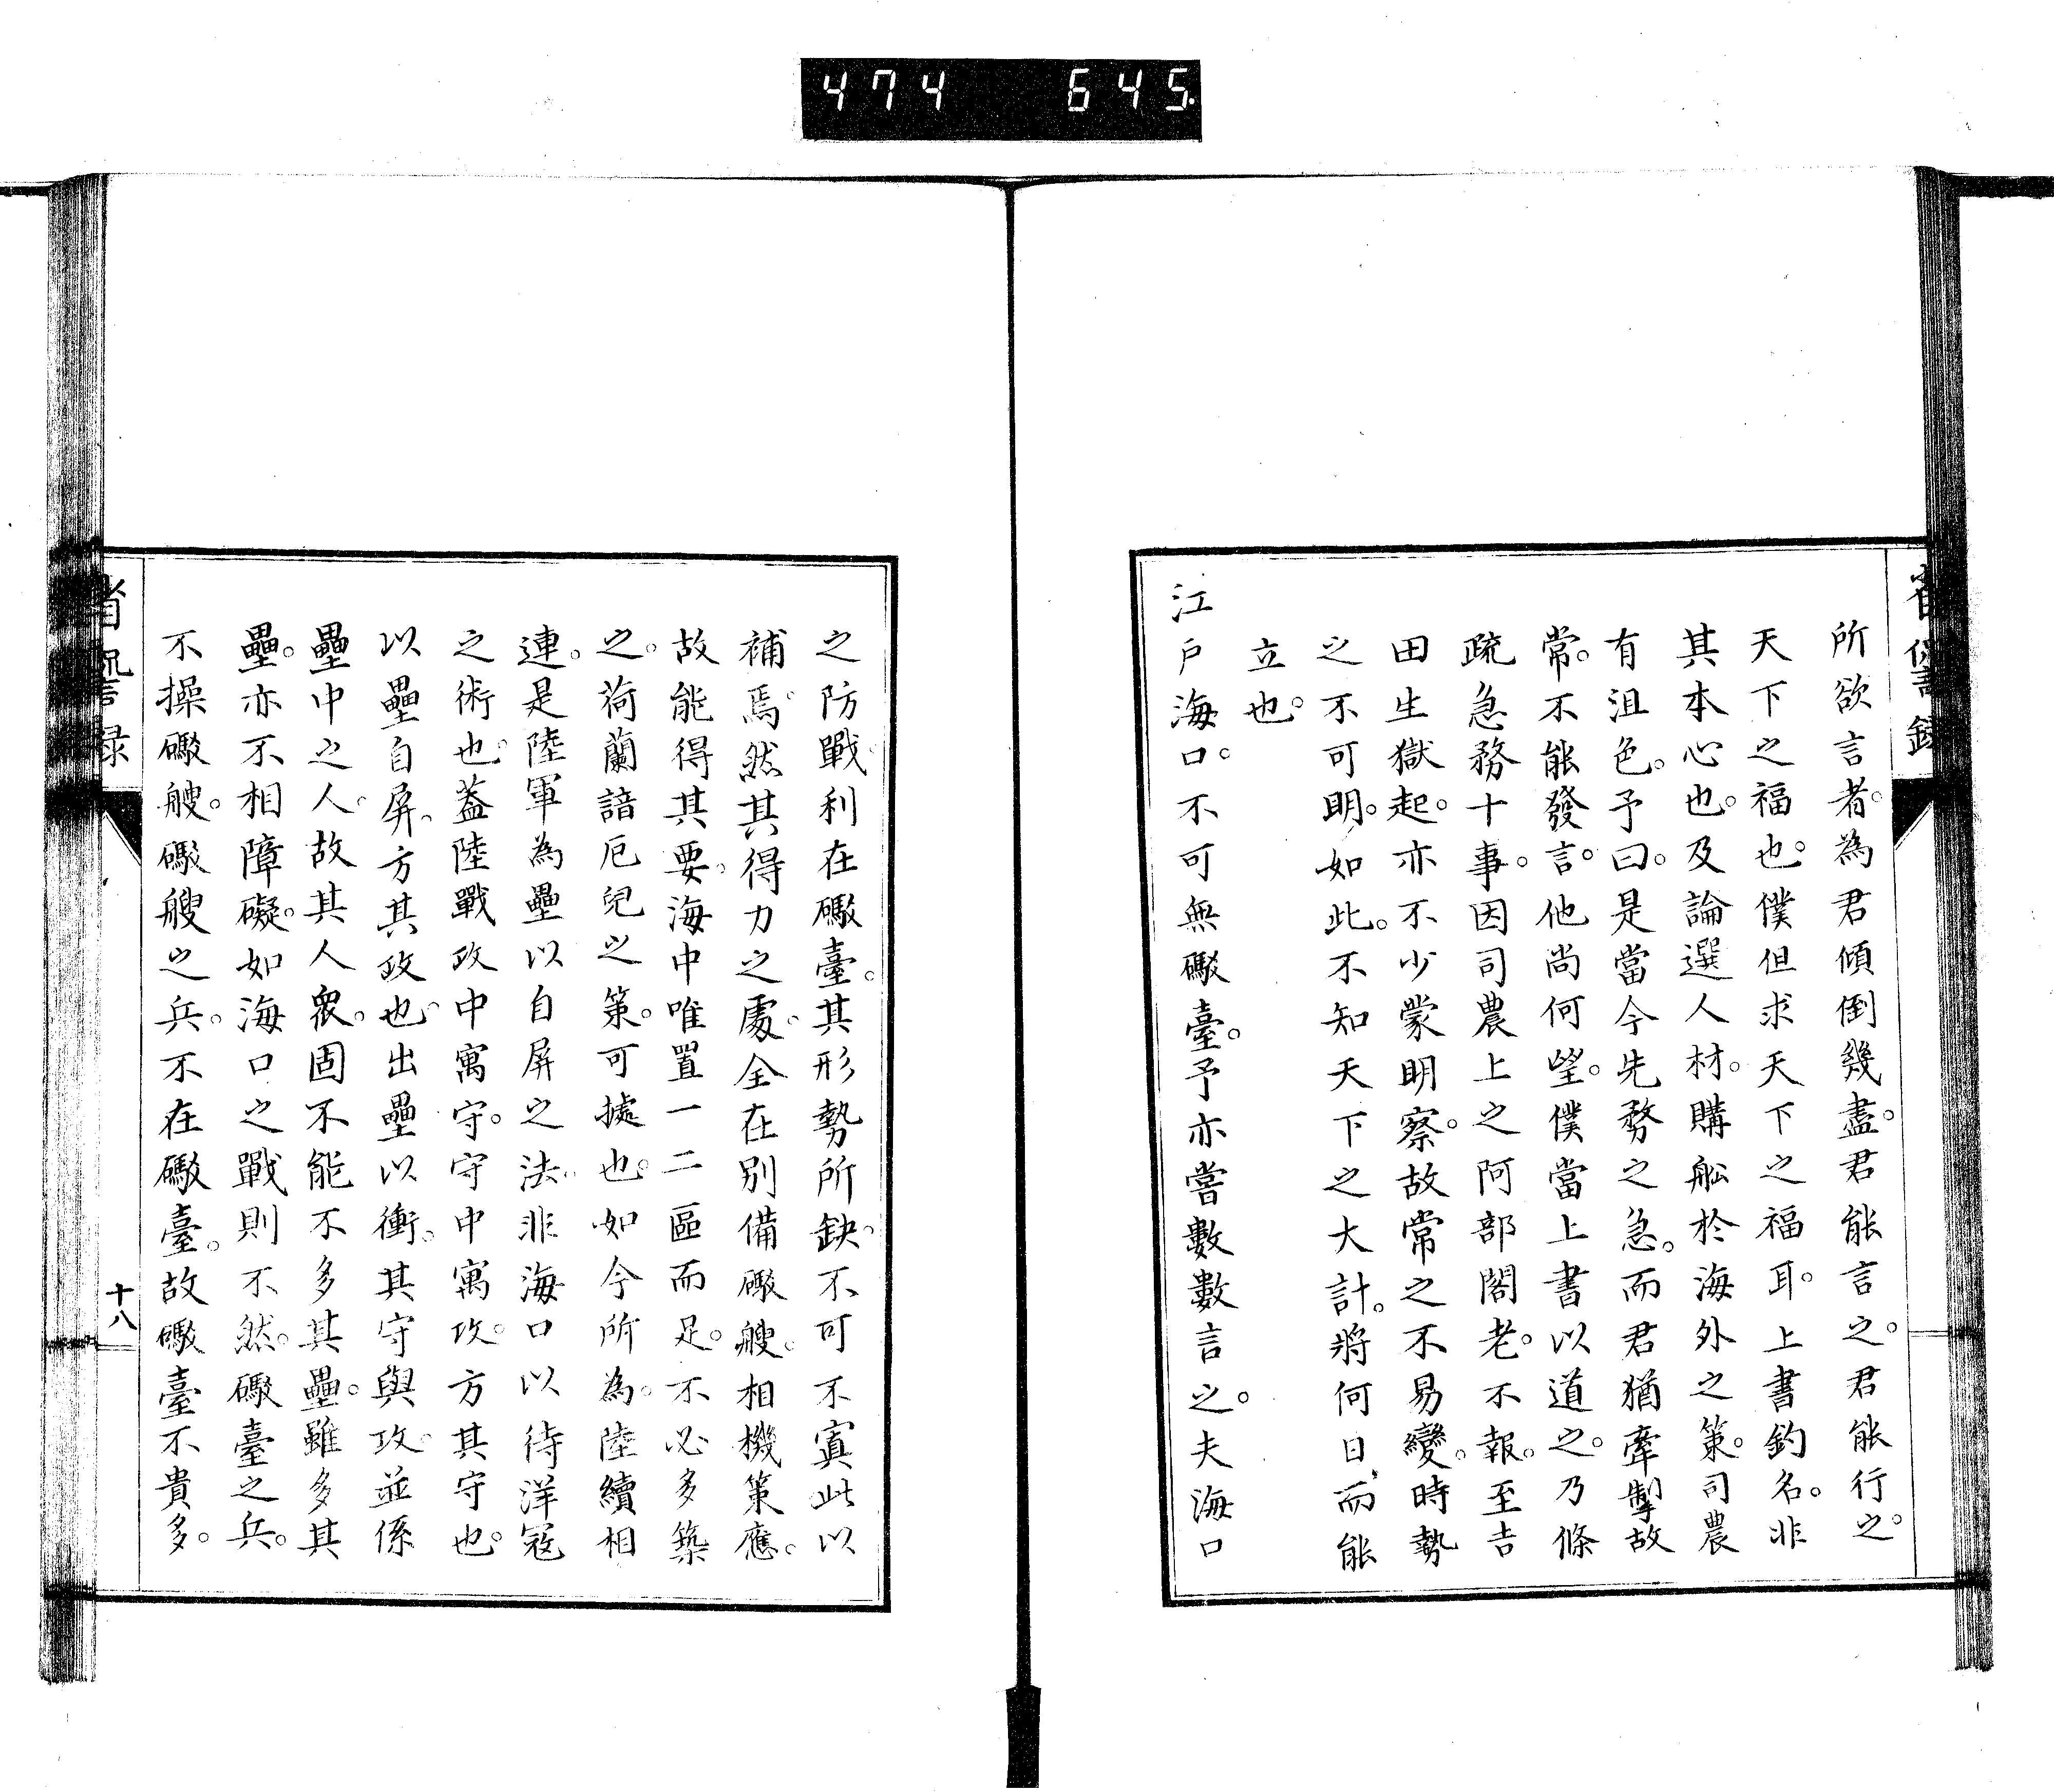 474 645
省諐録
所欲言者。為君傾倒幾盡。君能言之。君能行之。
天下之福也。僕但求天下之福耳。上書釣名。非
其本心也。及論選人材。購船於海外之策。司農
有沮色。予曰。是當今先務之急。而君猶牽掣故
常。不能發言。他尚何望。僕當上書以道之。乃條
疏急務十事。因司農上之阿部閣老。不報。至吉
田生獄起。亦不少蒙明察。故常之不易變。時勢
之不可明。如此。不知天下之大計。將何日而能
立也。
江戶海口。不可無礮臺。予亦嘗數數言之。夫海口
之防戰。利在礮臺。其形勢所缺。不可不寘此以
補焉。然其得力之處。全在別備礮艘。相機策應。
故能得其要。海中唯置一二區而足。不必多築
之。荷蘭諳厄兒之策。可據也。如今所為。陸續相
連。是陸軍為壘以自屏之法。非海口以待洋寇
之術也。蓋陸戰攻中寓守。守中寓攻。方其守也。
以壘自屏。方其攻也。出壘以衝。其守與攻。並係
壘中之人。故其人眾。固不能不多其壘。雖多其
壘。亦不相障礙。如海口之戰則不然。礮臺之兵。
不操礮艘。礮艘之兵。不在礮臺。故礮臺不貴多。
省諐録
十八